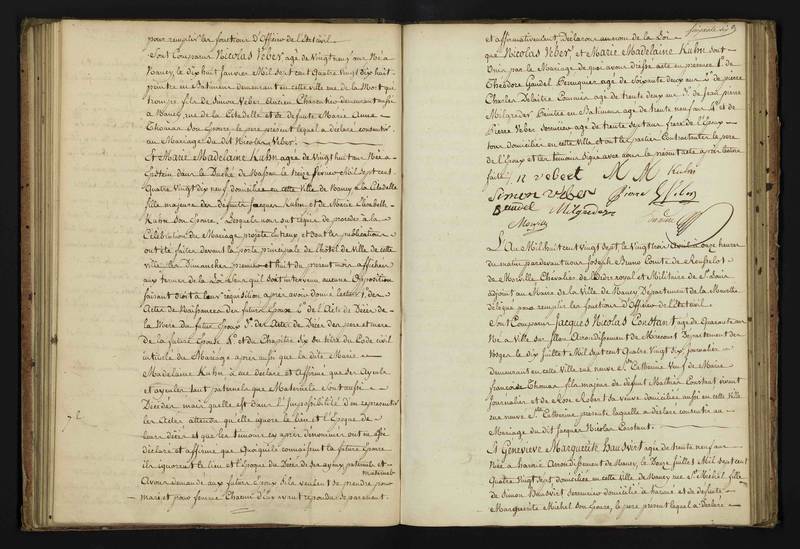 pour remplir les fonctions D'Officier de l'Etat civil
Sont Comparus Nicolas Veber agé de Vingt neuf ans Né a
Nancy, le dix huit Janvier Mil Sept cent Quatre Vingt dix huit
peintre en Batiments demeurant en cette ville rue de la Mort qui
trompe, fils de Simon Veber, ancien Charentier demeurant aussi
à Nancy, rue de la Citadelle et de defunte Marie Anne
Thomas Son Epouse, le pere present lequel a declaré consentir
au Mariage du dit Nicolas Veber.
Et Marie Madelaine Kuhn agée de Vingt huit ans Née a
Epstein dans le Duché de Nassau le seize fevrier Mil Sept cent
Quatre Vingt dix neuf domiciliée en cette Ville de Nancy à la Citadelle
fille majeure des defunts Jacques Kuhn et de Marie Elisabeth
Kuhn Son Epouse. Lesquels nous ont requis de proceder à la
Celebration du Mariage projeté entr'eux et dont les publications
ont été faites devant la porte principale de l'hôtel de Ville de cette
ville les Dimanches premier et huit du present mois affichées
aux termes de la Loi Sans qu'il soit intervenu aucune Opposition
faisant droit a leur requisition apres avoir donné lecture 1° des
Actes de Naissance des futurs Epoux 2° de l'Acte de Décès de
la Mere du futur Epoux 3° des Actes de Décès des pere et mere
de la future Epouse 4° et du Chapitre Six du titre du Code civil
intitulé du Mariage apres aussi que la dite Marie
Madelaine Kuhn a eu declaré et Affirmé que Ses Ayeuls
et ayeules tant paternels que Maternels Sont aussi
Décédés mais qu'elle est dans l'Impossibilité d'en representer
les Actes attendu qu'elle ignore le lieu et l'Epoque de
leurs décès et que les temoins ci après dénommés ont aussi
declaré et affirmé que Quoiqu'ils connaissent la future Epouse
ils ignorent le lieu et l'époque du Décès de ses ayeux paternels et
maternels
Avons demandé aux futurs Epoux S'ils veulent se prendre pour
mari et pour femme Chacun d'Eux ayant repondu Séparément
et affirmativement, Déclarons au nom de la Loi
que Nicolas Veber, et Marie Madelaine Kuhn sont
Unis par le Mariage de quoi avons dressé acte en présence 1° de
Théodore Gaudel Perruquier agé de Soixante deux ans 2° de pierre
Charles Delaitre Cordonnier agé de trente deux ans 3° de Jean pierre
Milgredes Peintre en Batiments agé de trente neuf ans 4° et de
Pierre Veber Serrurier agé de trente Sept ans frere de l'Epoux
tous domiciliés en cette Ville et ont les parties Contractantes le pere
de l'Epoux et les temoins Signé avec nous le présent acte après lecture
faite. N Vebert M M Kuhn
Simon veber Pierre
Gaudel Milgredes
L'An Mil huit cent Vingt Sept le Vingt trois Avril à onze heures
du matin pardevant nous Joseph Bruno Comte de
de Morville Chevalier de l'ordre royal et Militaire de St Louis
adjoint au Maire de la Ville de Nancy Département de la Meurthe
délégué pour remplir les fonctions d'Officier de l'Etat civil
Sont Comparus Jacques Nicolas Constant agé de Quarante ans
Né a Ville sur Illon Arrondissement de Mirecourt Département des
Vosges le dix Juillet Mil Sept cent Quatre Vingt Six Journalier
demeurant en cette Ville rue neuve Ste Catherine Veuf de Marie
françoise Thomas fils majeur de defunt Mathieu Constant vivant
Journalier et de Rose Robert sa veuve domiciliée aussi en cette Ville
rue neuve Ste Catherine présente laquelle a declaré consentir au
Mariage du dit Jacques Nicolas Constant.
Et Genevieve Marguerite Bausvirt agée de trente neuf ans
Née a arrondissement de Nancy le Douze Juillet Mil Sept cent
Quatre Vingt Sept domiciliée en cette Ville de Nancy rue St Michel fille
de Simon Bausvirt Serrurier domicilié a et de defunte
Marguerite Michel Son Epouse, le pere présent lequel a Déclaré